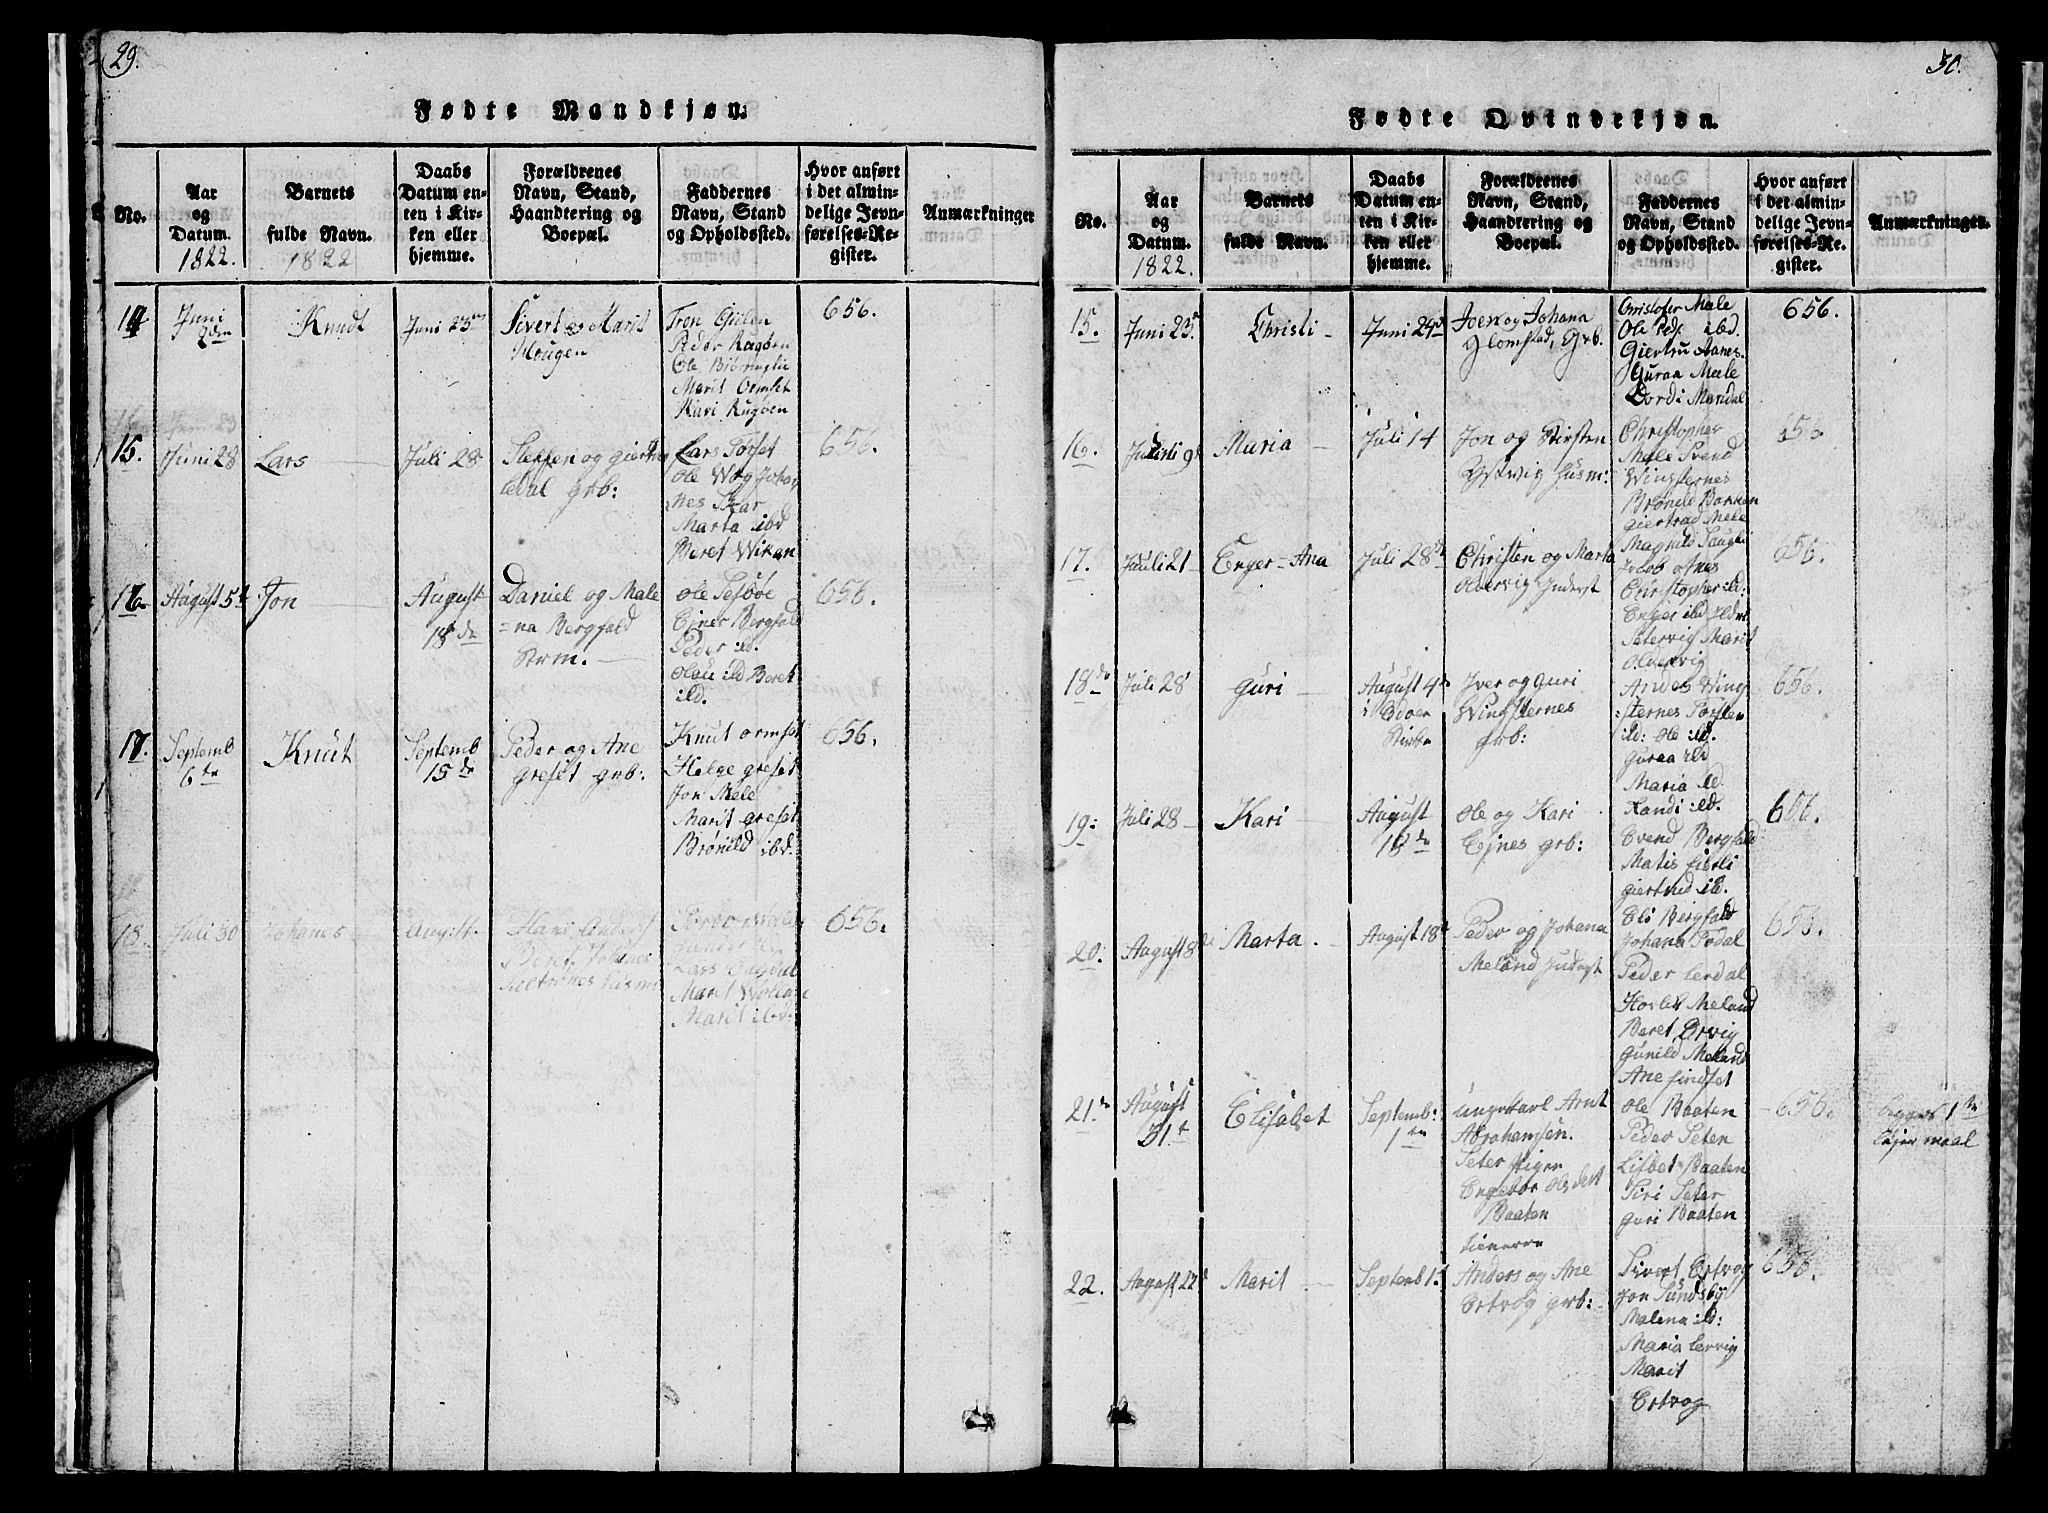 29.
Fødte Mandkjøn.
No.
Aar
og
Datum.
1822.
Barnets
fulde Navn.
1822
Daabs
Datum en-
ten i Kir-
ken eller
hjemme.
Forældrenes
Navn, Stand,
Haandtering og
Boepæl.
Faddernes
Navn, Stand
og Opholdssted.
Hvor anført
i det almin-
delige Jevn-
førelses-Re-
gister.
Anmærkninger
14
Juni
2den
Knudt
Juni 23
Sivert og Marit
Hougen
Tron Gulen
Peder Rugøen
Ole
Marit Ormset
Kari Rugøen
656.
15.
Juni 28
Lars
Juli 28
Steffen og
grb:
Lars Torset
Ole Wog Johan
nes Skar
Marta ibd
Beret Wikan
656.
16.
August 5te
Jon
August
18de
Daniel og Male
=na Bergfald
Strm.
Ole Sesbøe
Ejner Bergfald
Peder ibd.
Olau ibd Beret
ibd.
656.
17.
Septemb
6te
Knut
Septemb
15de
Peder og Ane
Greset grb:
Knut Ormset
Helge Greset
Jon Mele
Marit Greset
Brønild ibd.
656.
18.
Juli 30
Johanes
August.
Hans
Beret
Lars
Marit
Marit ibd:
656.
30.
Fødte Qvindekjøn.
No.
Aar
og
Datum.
1822.
Barnets
fulde Navn.
Daabs
Datum en-
ten i Kir-
ken eller
hjemme.
Forældrenes
Navn, Stand,
Haandtering og
Boepæl.
Faddernes
Navn, Stand
og Opholdssted.
Hvor anført
i det almin-
delige Jevn-
førelses-Re-
gister.
Anmærkninger.
15.
Juni 23
Christi
Juni 24
Joen og Johana
Glomstad, Grb.
Christofer Male
Ole Peds. ibd.
Giertru Aanes.
Guraa Mele
Dordi Mandal
656.
16.
Maria
Juli 14
Jon og Kirsten
Ystvig Husm:
Christopher
Mele Svend
Wingsternes
Brønild Bakken
Giertrud Mele
656
17.
Juli 21
Enger=Ana
Juli 28
Christen og Marta
Oldervig Inderst
Magnild
Christopher ibd:
Enger ibd
Setervig Marit
Oldervig
656.
18de
Juli 28
Guri
August 4
i Edøen
Kirke
Iver og Guri
Wingsternes
grb:
Andes Wing
sternes Torsten
ibd: Ole ibd.
Guraa ibd
Maria ibd.
656.
19:
Juli 28
Kari
August
18de
Ole og Kari
Ejnes grb:
Randi ibd.
Evend Bergfald
Matis
Giertrud ibd.
656.
20:
August 8
Marta.
August 18
Peder og Johana
Meland Inderst
Eli Bergfald
Johana Todal
Peder
Meland
Beret Ørvig
Gunild Meland
Ane Findset
656.
21.
August
31t
Elisabet
Septemb:
1te
Ungekarl Arnt
Abrahamsen.
Seter Pigen
Engebor Olsdatt
Baaten
tienerne
Ole Baaten
Peder Seten
Lisbet Baaten
Siri Seter
Guri Baaten
656.
begges 1te
lejermaal
22.
August 22
Marit
Septemb 1
Anders og Ane
Ertvog grb:
Sivert Ertvog
Jon Sundsby
Malena ibd:
Maria
Marit
Ertvog
656.